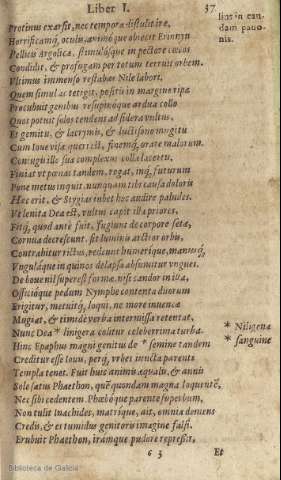 Liber I. 37
Protinus exarsit, nec tempora distulit iræ,
Horrificamq́; oculis animoq́ue obiecit Erinnyn
Pellicis Argolicæ, stimulosque in pectore cæcos
Condidit, & profugam per totum terruit orbem.
Vltimus immenso restabas Nile labori,
Quem simul ac tetigit, positis in margine ripæ
Procubuit genibus resupinoque ardua collo
Quos potuit solos tendens ad sidera vultus,
Et gemitu, & lacrymis, & luctisono mugitu
Cum Ioue visa queri est, finemq́; orare malorum.
Coniugis ille suæ complexus colla lacertis,
Finiat vt pœnas tandem, rogat, inq́; futurum
Pone metus inquit, nunquam tibi causa doloris
Hæc erit, & Stygias iubet hoc audire paludes.
Vt lenita Dea est, vultus capit illa priores,
Fitq́; quod ante fuit, fugiunt de corpore setæ,
Cornua decrescunt, fit luminis arctior orbis,
Contrahitur rictus, redeunt humerique, manusq́;
Vngulaque in quinos dilapsa absumitur vngues.
De boue nil superest formæ, nisi candor in illa,
Officioque pedum Nymphe contenta duorum
Erigitur, metuitq́; loqui, ne more iuuencæ
Mugiat, & timide verba intermissa retentat,
Nunc Dea * linigera colitur celeberrima turba.
Hinc Epaphus magni genitus de * semine tandem
Creditur esse Iouis, perq́; vrbes iuncta parenti
Templa tenet. Fuit huic animis æqualis, & annis
Sole satus Phaethon, quẽ quondam magna loquentẽ,
Nec sibi cedentem, Phœboque parente superbum,
Non tulit Inachides, matrique, ait, omnia demens
Credis, & es tumidus genitoris imagine falsi.
Erubuit Phaethon, iramque pudore repressit,
e 3 Et
* Niligena
* sanguine
Biblioteca de Galicia